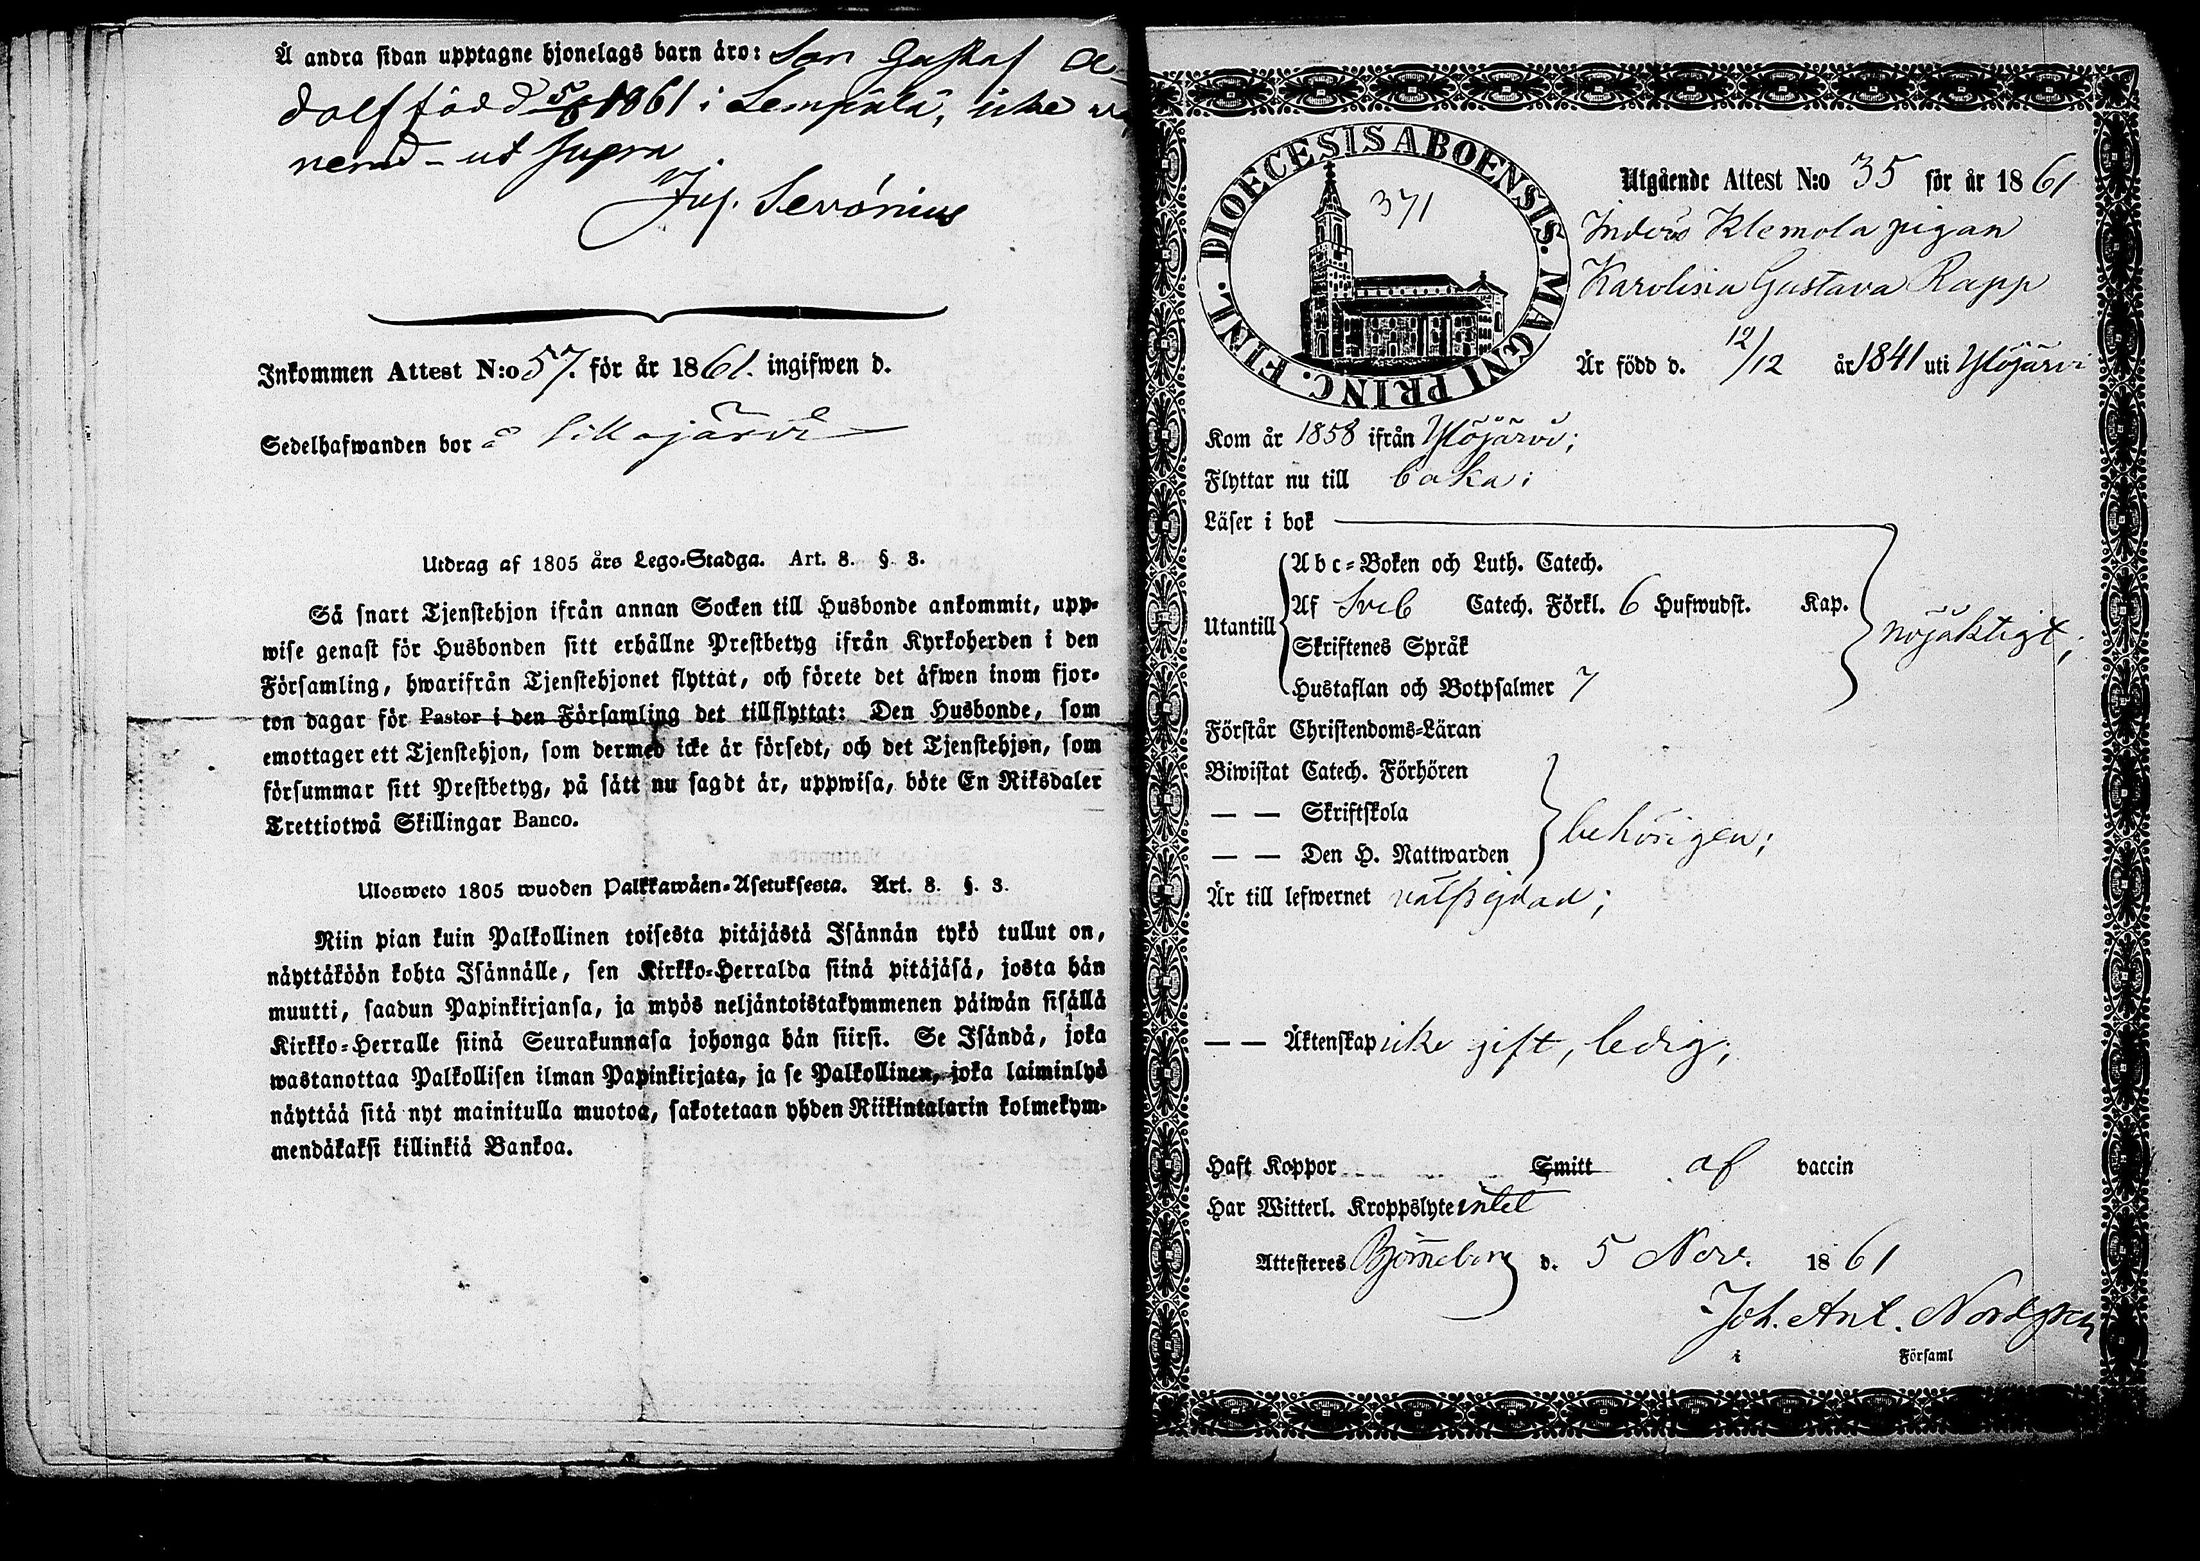 Å andra sidan upptagne hjonelags barn äro: Son Gustaf A-
dolf född 5/8 1861 i Lempälä, icke
nerad - ut supra
Serónius
Inkommen Attest N:o 57. för år 1861. ingifwen d.
Sedelhafwanden bor å Sikojärvi
Utdrag af 1805 års Lego-Stadga. Art. 8. §. 3.
Så snart Tjenstehjon ifrån annan Socken till Husbonde ankommit, upp-
wise genast för Husbonden sitt erhållne Prestbetyg ifrån Kyrkoherden i den
Församling, hwarifrån Tjenstehjonet flyttat, och förete det äfwen inom fjor-
ton dagar för Pastor i den Församling det tillflyttat: Den Husbonde, som
emottager ett Tjenstehjon, som dermed icke är försedt, och det Tjenstehjon, som
försummar sitt Prestbetyg, på sätt nu sagdt är, uppwisa, böte En Riksdaler
Trettiotwå Skillingar Banco.
Ulosweto 1805 wuoden Palkkawäen-Asetuksesta. Art. 8. §. 3.
Niin pian kuin Palkollinen toisesta pitäjästä Isännän tykö tullut on,
näyttäköön kohta Isännälle, sen Kirkko-Herralda siinä pitäjäsä, josta hän
muutti, saadun Papinkirjansa, ja myös neljäntoistakymmenen päiwän sisällä
Kirkko-Herralle siinä Seurakunnasa johonga hän siirsi. Se Isändä, joka
wastanottaa Palkollisen ilman Papinkirjata, ja se Palkollinen, joka laiminlyö
näyttää sitä nyt mainitulla muotoa, sakotetaan yhden Riikintalarin kolmekym-
mendäkaksi killinkiä Bankoa.
DIOECESIS ABOENSIS. MAGNI PRINC. FINL.
371
Utgående Attest N:o 35 för år 1861
Inderes Klemola pigan
Karolina Gustava Rapp
Är född d. 12/12 år 1841 uti Ylöjärvi
Kom år 1858 ifrån Ylöjärvi;
Flyttar nu till baka;
Läser i bok
Utantill
Abc-Boken och Luth. Catech.
Af Sveb Catech. Förkl. 6 Hufwudst. Kap.
Skriftenes Språk
Hustaflan och Botpsalmer 7
nöjaktigt;
Förstår Christendoms-Läran
Biwistat Catech. Förhören
— — Skriftskola
— — Den H. Nattwarden
behörigen;
Är till lefwernet välfrejdad;
— — Äktenskap icke gift, ledig;
Haft Koppor Smitt af vaccin
Har Witterl. Kroppslyte intet
Attesteres Björneborg d. 5 Nov. 1861
Joh. Ant. Nordgren
i Församl